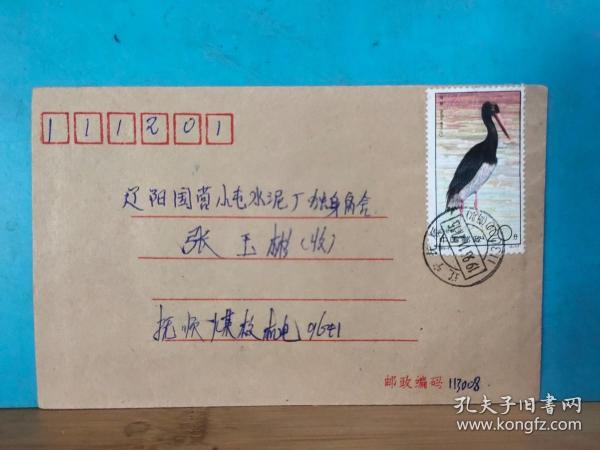 111201
辽阳国营小屯水泥厂独身宿舍
张玉彬(收)
抚顺煤校机电9641
邮政编码 113008
孔夫子旧书网
www.kongfz.com